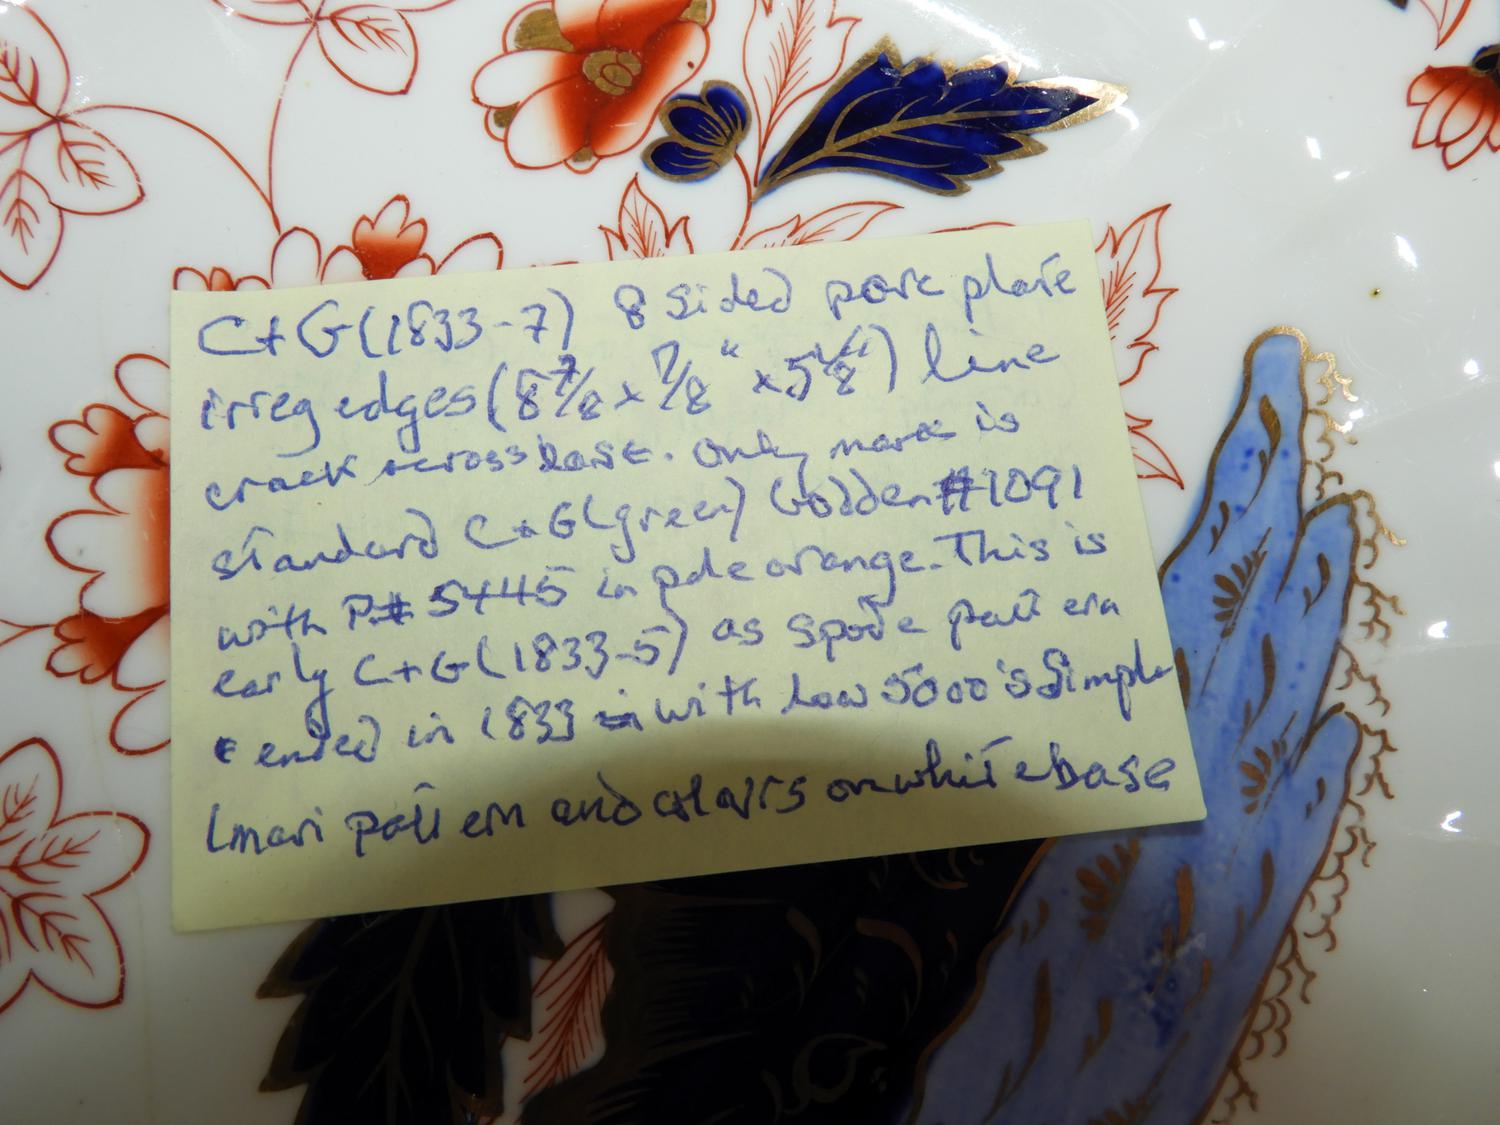 C+G (1833-7) 8 sided pork plate
irreg edges (8 7/8 x 7/8" x 5 1/8") line
crack across base. Only mark is
standard C+G (green) Godden #1091
with P.# 5445 in pale orange. This is
early C+G (1833-5) as spode pattern
ended in 1833 with low 5000's Simple
Imari pattern and colours on white base